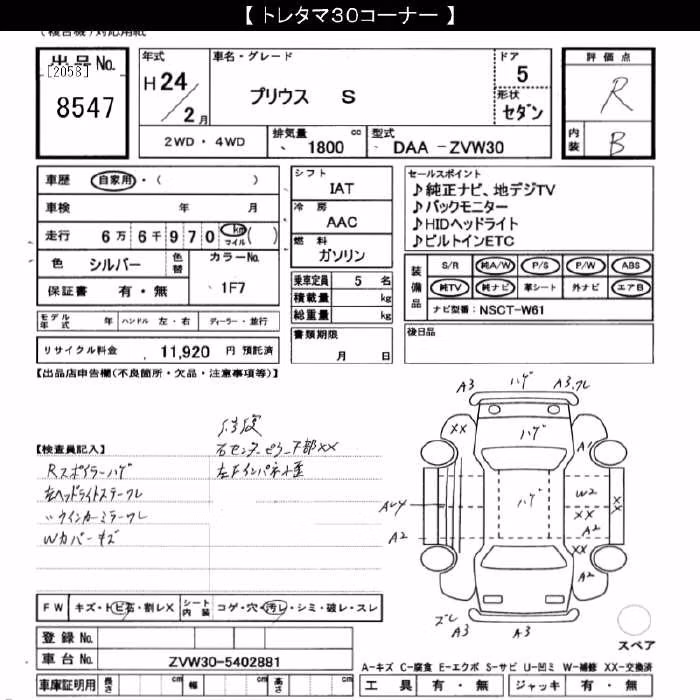 【 トレタマ30コーナー 】
(複合機)対応用紙
出品No.
[2058]
8547
年式
H 24
/ 2 月
車名・グレード
プリウス S
ドア
5
形状
セダン
評価点
R
内装
B
2WD・4WD
排気量 cc
、1800
型式
DAA-ZVW30
車歴 自家用・( )
車検 年 月
走行 6万6千970 km マイル ( )
色 シルバー 色替
カラーNo.
1F7
保証書 有・無
シフト
IAT
冷房
AAC
燃料
ガソリン
乗車定員 5 名
積載量 kg
総重量 kg
書類期限
月 日
セールスポイント
♪純正ナビ、地デジTV
♪バックモニター
♪HIDヘッドライト
♪ビルトインETC
装備品
S/R 純A/W P/S P/W ABS
純TV 純ナビ 革シート 外ナビ エアB
ナビ型番: NSCT-W61
後日品
モデル年式 年 ハンドル 左・右 ディーラー・並行
リサイクル料金 、11,920 円 預託済
【出品店申告欄(不良箇所・欠品・注意事項等)】
【検査員記入】
右センターピラー下部XX
左下インパネキズ
Rスポイラーハゲ
左ヘッドライトステークレ
〃ウインカーミラークレ
Wカバーキズ
A3 ハゲ A3.クレ
XX ハゲ A1
ハゲ W2 XX
A2 XX A2
XX A2
ズレ A3 A3
スペア
FW キズ・トビ石・割レX シート内装 コゲ・穴・汚レ・シミ・破レ・スレ
登録No.
車台No. ZVW30-5402881
A-キズ C-腐食 E-エクボ S-サビ U-凹ミ W-補修 XX-交換済
車庫証明用 長さ cm 幅 cm 高さ cm
工具 有・無 ジャッキ 有・無